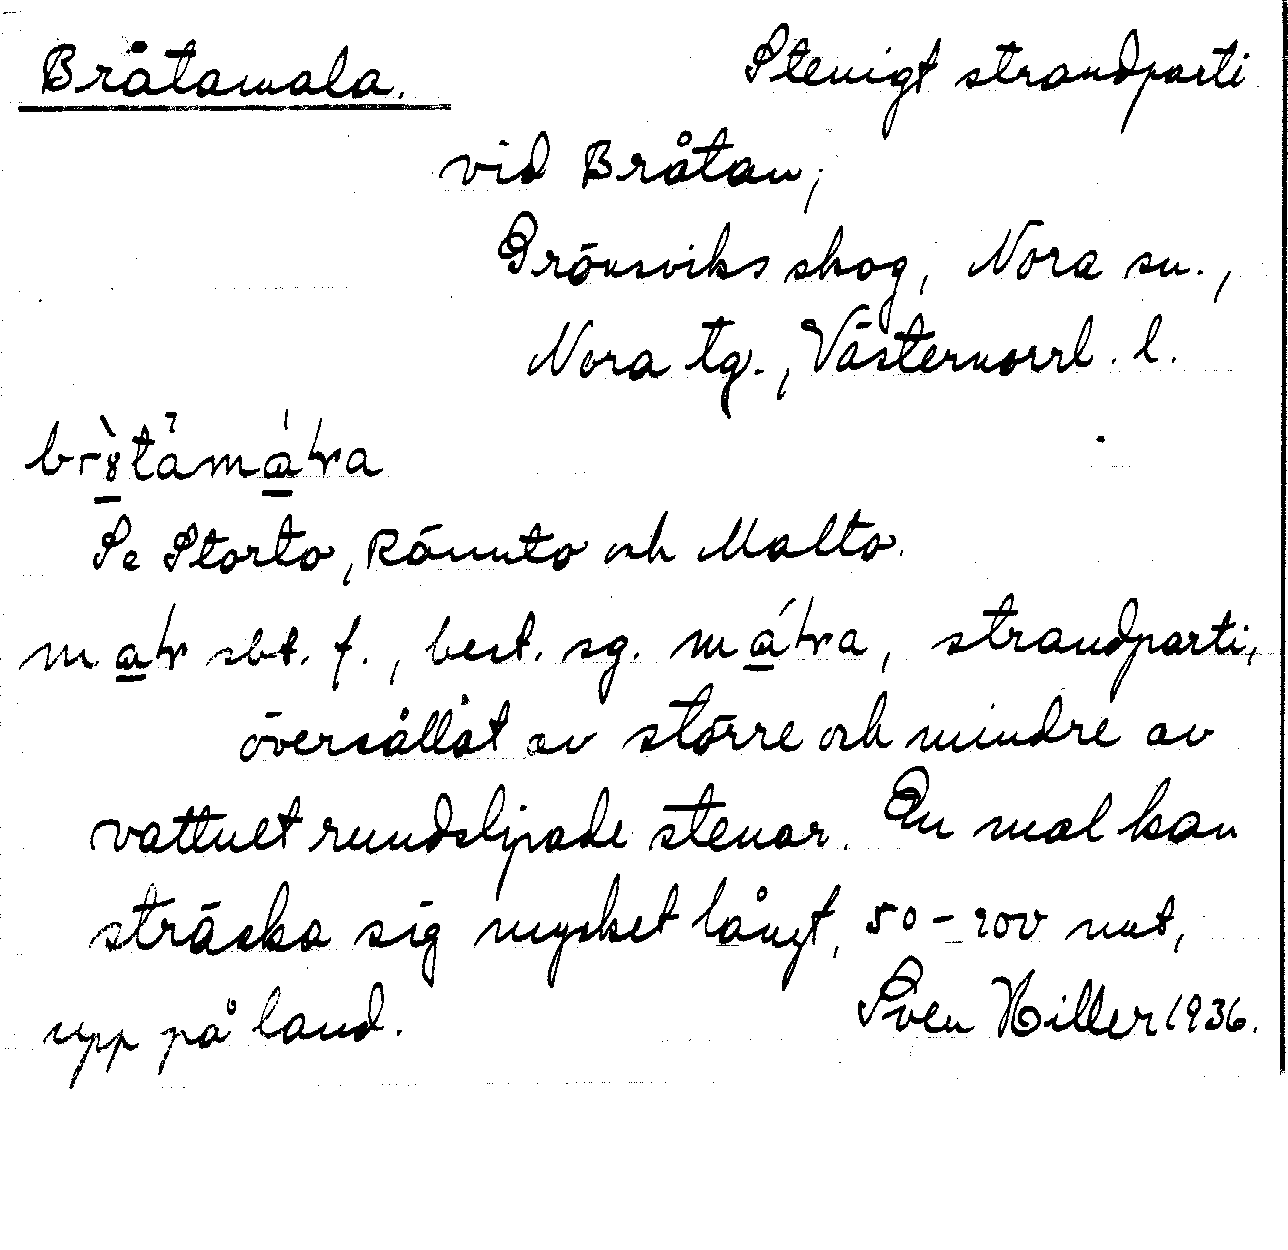 Bråtamala. Stenigt strandparti
vid Bråtan,
Grönsviks skog, Nora sn.,
Nora tg., Västernorrl. l.
Se Storto, Rönnto och Malto.
sbt. f., best. sg. strandparti,
översållat av större och mindre av
vattnet rundslipade stenar. En mal kan
sträcka sig mycket långt, 50-200 mt,
upp på land. Sven Hiller 1936.